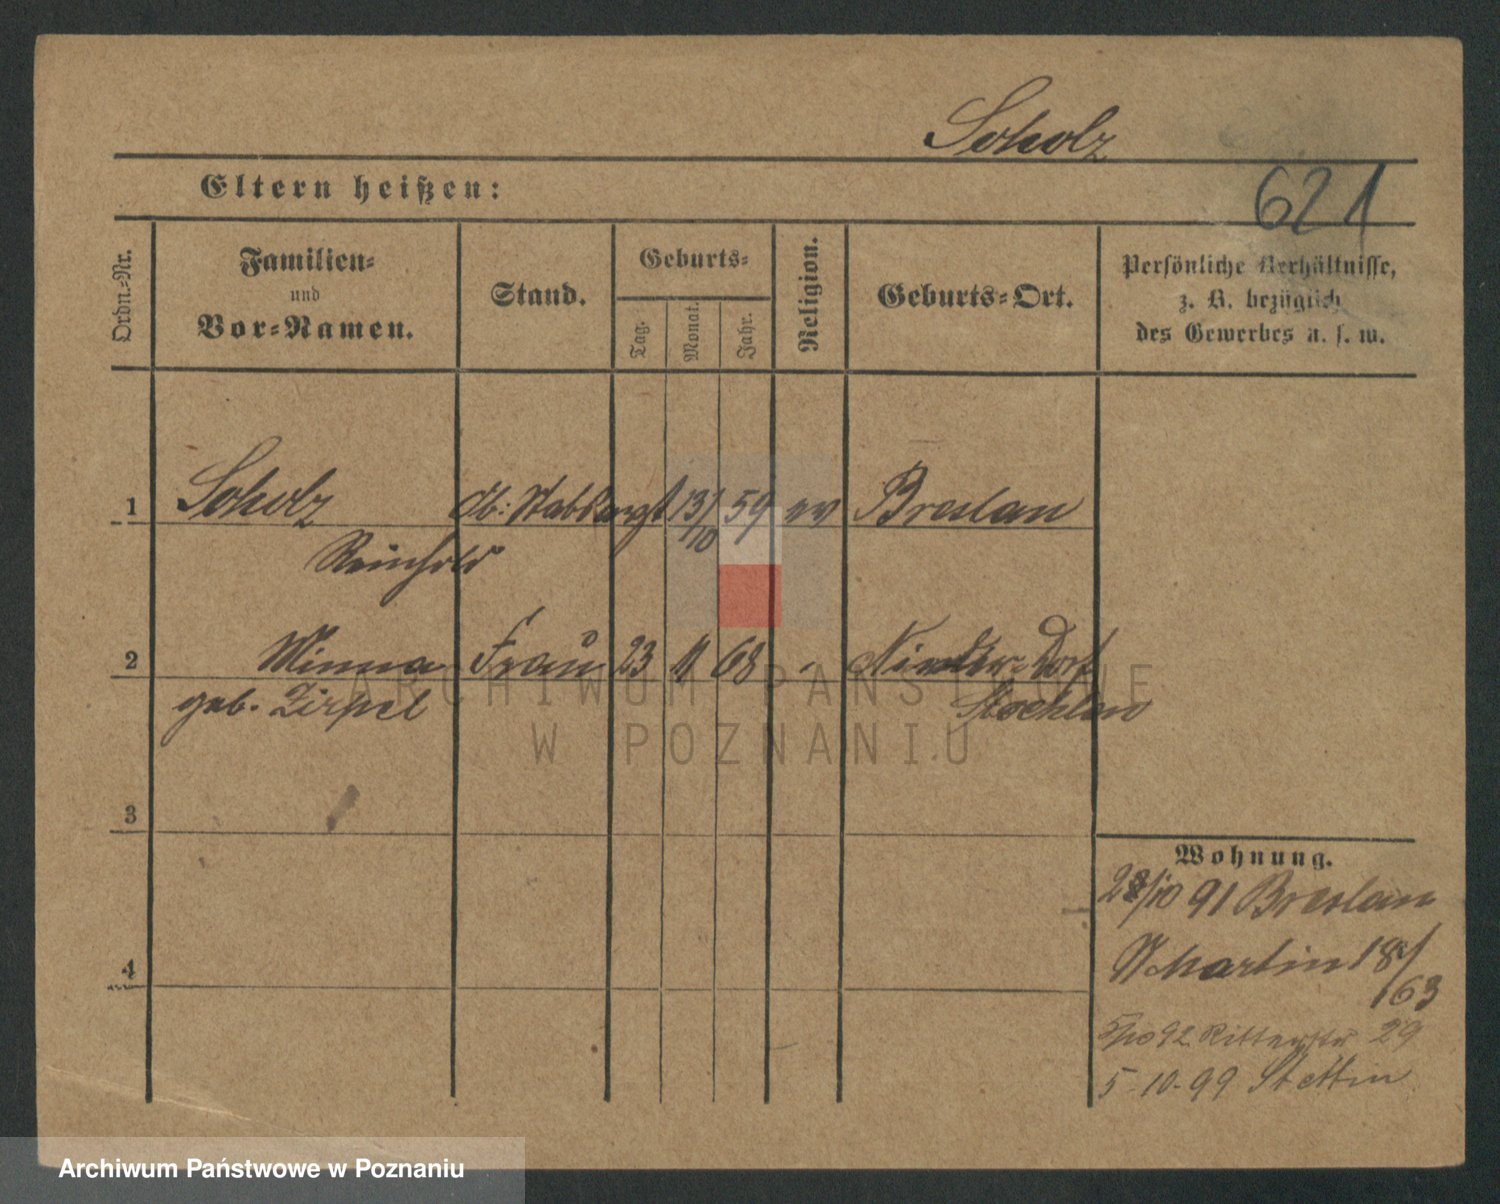 Scholz
Eltern heißen:
621
Ordn.-Nr.
Familien-
und
Vor-Namen.
Stand.
Geburts-
Tag.
Monat.
Jahr.
Religion.
Geburts-Ort.
Persönliche Verhältnisse,
z. B. bezüglich
des Gewerbes u. s. w.
1 Scholz Ob: Stabsarzt 13/10 59 ev Breslau
Reinhold
2 Minna Frau 23 11 68 Nieder-Dorf
geb. Zirpel
3
Wohnung.
28/10 91 Breslau
St Martin 18/
63
4
5/10 92 Ritterstr 29
5-10-99 Stettin
ARCHIWUM PAŃSTWOWE
W POZNANIU
Archiwum Państwowe w Poznaniu